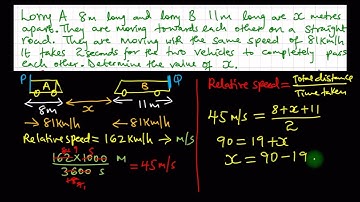 Lorry A 8m long and lorry B 11m long are x metres
apart. They are moving towards each other on a straight
road. They are moving with the same speed of 81km/h
It takes 2 seconds for the two vehicles to completely pass
each other. Determine the value of x.
P A B Q
8m x 11m
→81km/h ←81km/h
Relative speed = 162km/h → m/s
162×1000 m
3600 s
= 45m/s
Relative speed = Total distance
Time taken
45m/s = 8+x+11
2
90 = 19+x
x = 90-19